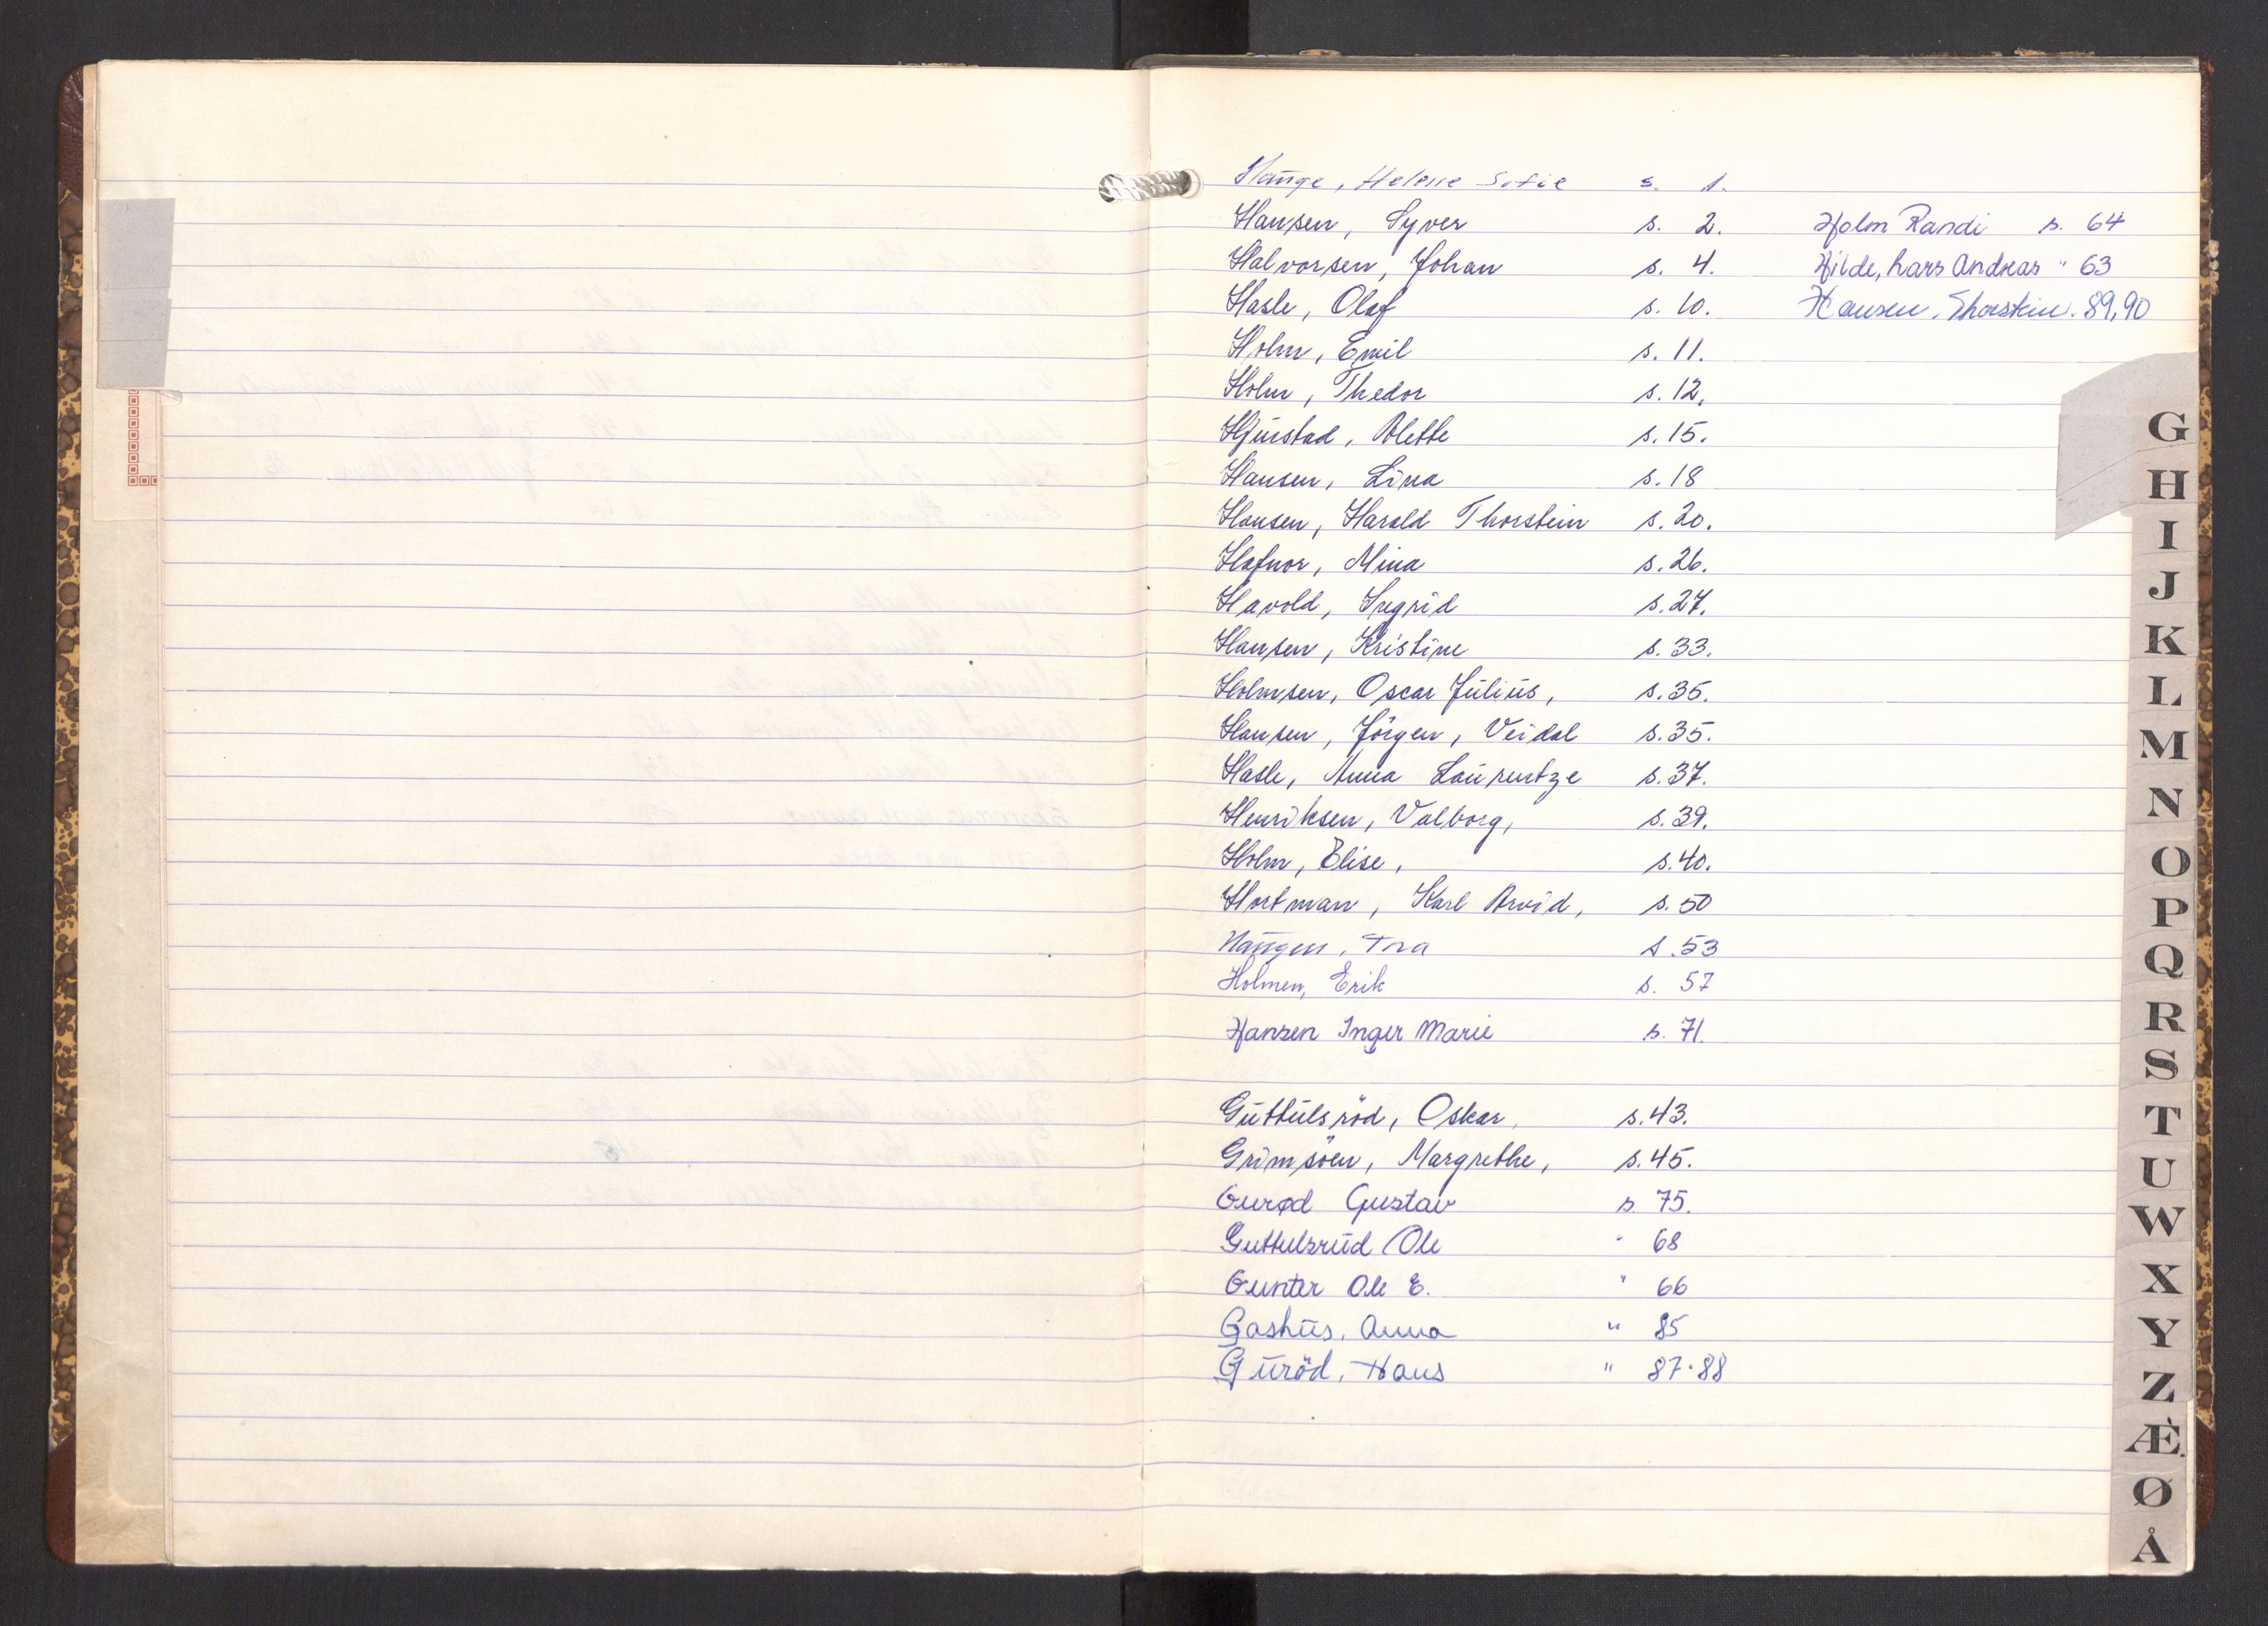 Hauge, Helene Sofie s. 1.
Hansen, Syver s. 2.
Halvorsen, Johan s. 4.
Hasle, Olaf s. 10.
Holm, Emil s. 11.
Holm, Thedor s. 12.
Hjuistad, Olette s. 15.
Hansen, Lina s. 18
Hansen, Harald Thorstein s. 20.
Hafnor, Mina s. 26.
Havold, Sigrid s. 27.
Hansen, Kristine s. 33.
Holmsen, Oscar Julius, s. 35.
Hansen, Jörgen, Veidal s. 35.
Hasle, Anna Laurentze s. 37.
Henriksen, Valborg, s. 39.
Holm, Elise, s. 40.
Hortman, Karl Arvid, s. 50
Haugen, Tora s. 53
Holmen, Erik s. 57
Hansen Inger Marie s. 71.
Guttulsröd, Oskar, s. 43.
Grimsöen, Margrethe, s. 45.
Gurød Gustav s. 75.
Guttulsrud Ole " 68
Gunter Ole E. " 66
Gashus, Anna " 85
Guröd, Hans " 87.88
Holm Randi s. 64
Hilde, Lars Andreas " 63
Hansen, Thorstein. 89,90
G
H
I
J
K
L
M
N
O
P
Q
R
S
T
U
W
X
Y
Z
Æ
Ø
Å